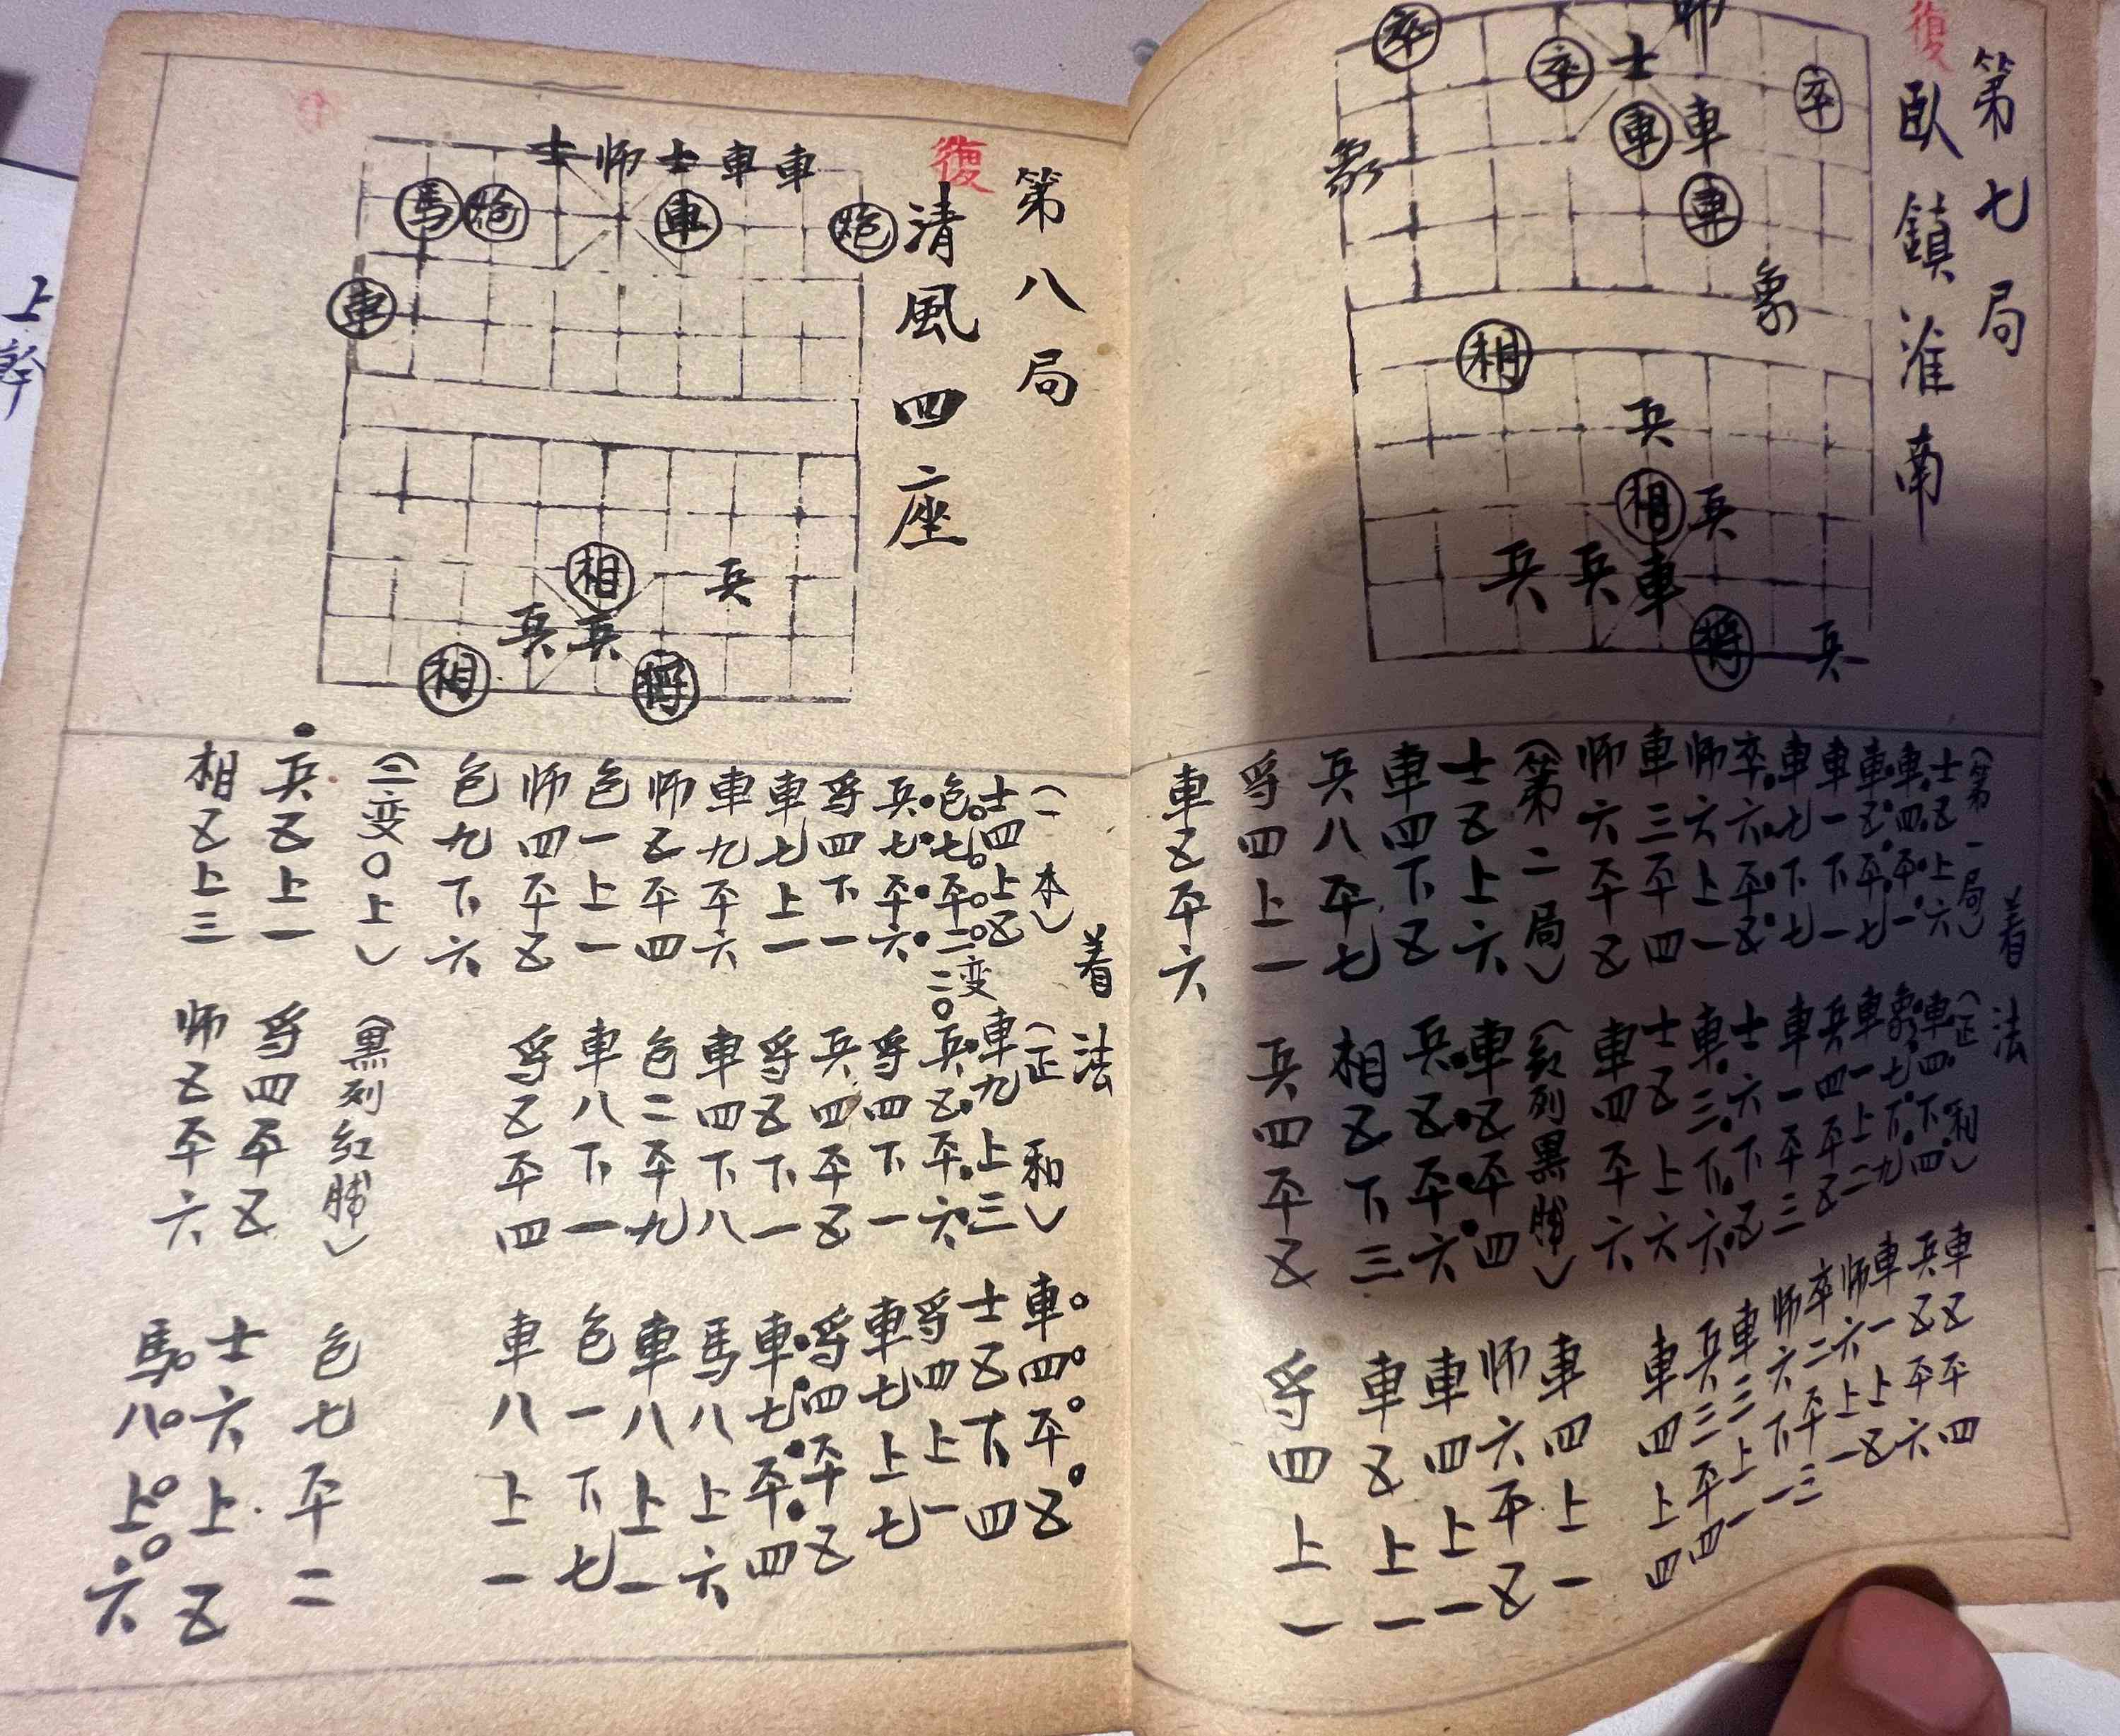 第七局
復
臥鎮淮南
师
卒
卒
士
卒
車
車
象
車
象
相
兵
相
兵
兵
兵
車
将
兵
着法
(第一局)
(正和)
士五上六
車四下四
車五平四
車四平一
象七下九
兵五平六
車五平七
車一上二
車一上五
車一下一
兵四平五
师六上一
車七下七
車一平三
卒二平三
卒六平五
士六下五
师六下一
师六上一
車三下六
車三上一
車三平四
士五上六
兵三平四
师六平五
車四平六
車四上四
(第二局)
(紅列黒勝)
士五上六
車五平四
車四上一
車四下五
兵五平六
师六平五
兵八平七
相五下三
車四上一
将四上一
兵四平五
車五上一
車五平六
将四上一
第八局
復
清風四座
士师士車車
馬
炮
車
炮
車
相
兵
兵
兵
相
将
着法
(一本)
(正和)
車四平五
士四上五
車九上三
士五下四
炮七平二
二变
兵五平六
将四上一
兵七平六
将四下一
車七上七
将四下一
兵四平五
将四平五
車七上一
将五下一
車七平四
車九平六
車四下八
馬八上六
师五平四
炮二平九
車八上一
炮一上一
車八下一
炮一下七
师四平五
将五平四
車八上一
炮九下六
(二变〇上)
(黒列紅勝)
炮七平二
兵五上一
将四平五
士六上五
相五上三
师五平六
馬八上六
上
幹